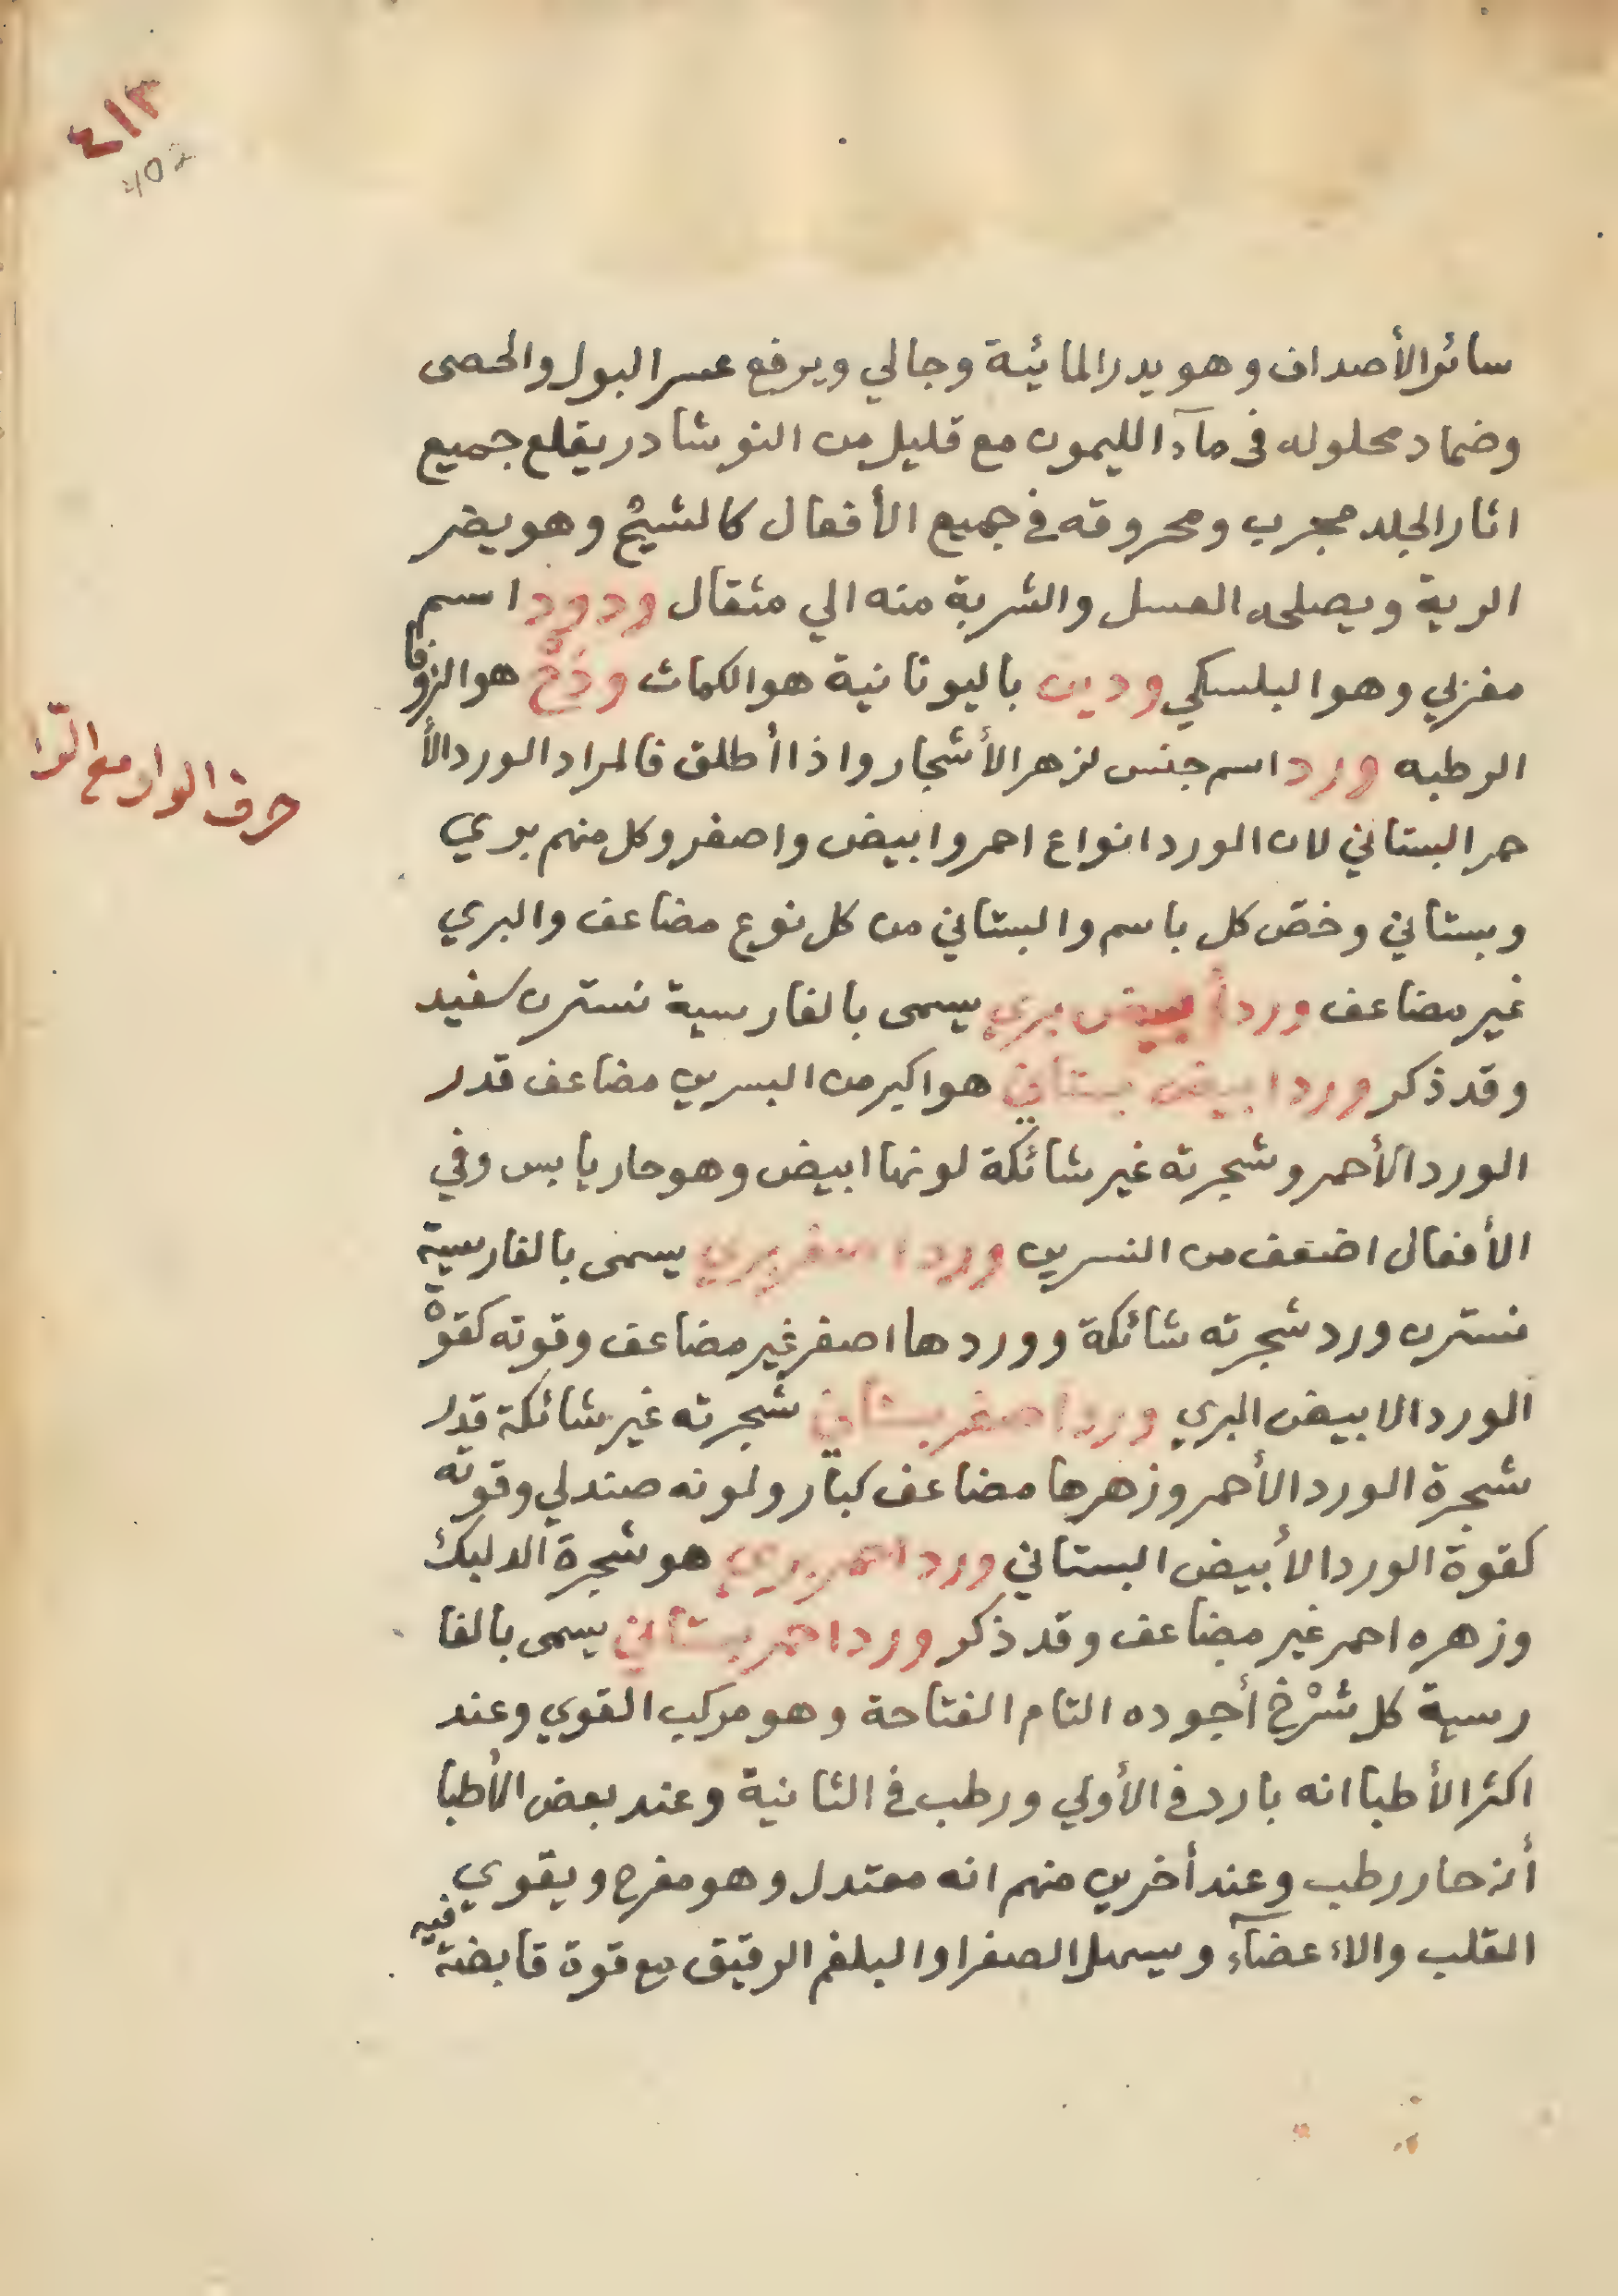 ٤١٣
402
سائر الأصداف وهو يدر المائية وجالي ويرفع عسر البول والحصى
وضماد محلوله فى مآء الليمون مع قليل من النوشادر يقلع جميع
اثار الجلد مجرب ومحروقه في جميع الأفعال كالشيح وهو يضر
الرية ويصلحه العسل والشربة منه الي مثقال ودود اسم
مغربي وهو البلسكي ودين باليونانية هو الكماث وذح هو الزوفا
الرطبه ورد اسم جنس لزهر الأشجار واذا أطلق فالمراد الورد الأ
حرف الواو مع الرّا
حمر البستاني لان الورد انواع احمر وابيض واصفر وكل منهم بري
وبستاني وخصّ كل باسم والبستاني من كل نوع مضاعف والبري
غير مضاعف ورد أبيض بري يسمى بالفارسية نسترن سفيد
وقد ذكر ورد ابيض بستاني هو اكبر من البسرين مضاعف قدر
الورد الأحمر وشجرته غير شائكة لونها ابيض وهو حار يابس وفي
الأفعال اضعف من النسرين ورد اصفر بري يسمى بالفارسية
نسترن ورد شجرته شائكة ووردها اصفر غير مضاعف وقوته كقوة
الورد الابيض البري ورد اصفر بستاني شجرته غير شائكة قدر
شجرة الورد الأحمر وزهرها مضاعف كبار ولونه صندلي وقوته
كقوة الورد الأبيض البستاني ورد احمر بري هو شجرة الدليك
وزهره احمر غير مضاعف وقد ذكر ورد احمر بستاني يسمى بالفا
رسية كل سْرْخ أجوده التام الفتاحة وهو مركب القوي وعند
اكثر الأطبا انه بارد في الأولي ورطب في الثانية وعند بعض الأطبا
أنه حار رطب وعند أخرين منهم انه معتدل وهو مفرح ويقوي
القلب والاعضآء ويسهل الصفرا والبلغم الرقيق مع قوة قابضة فيه